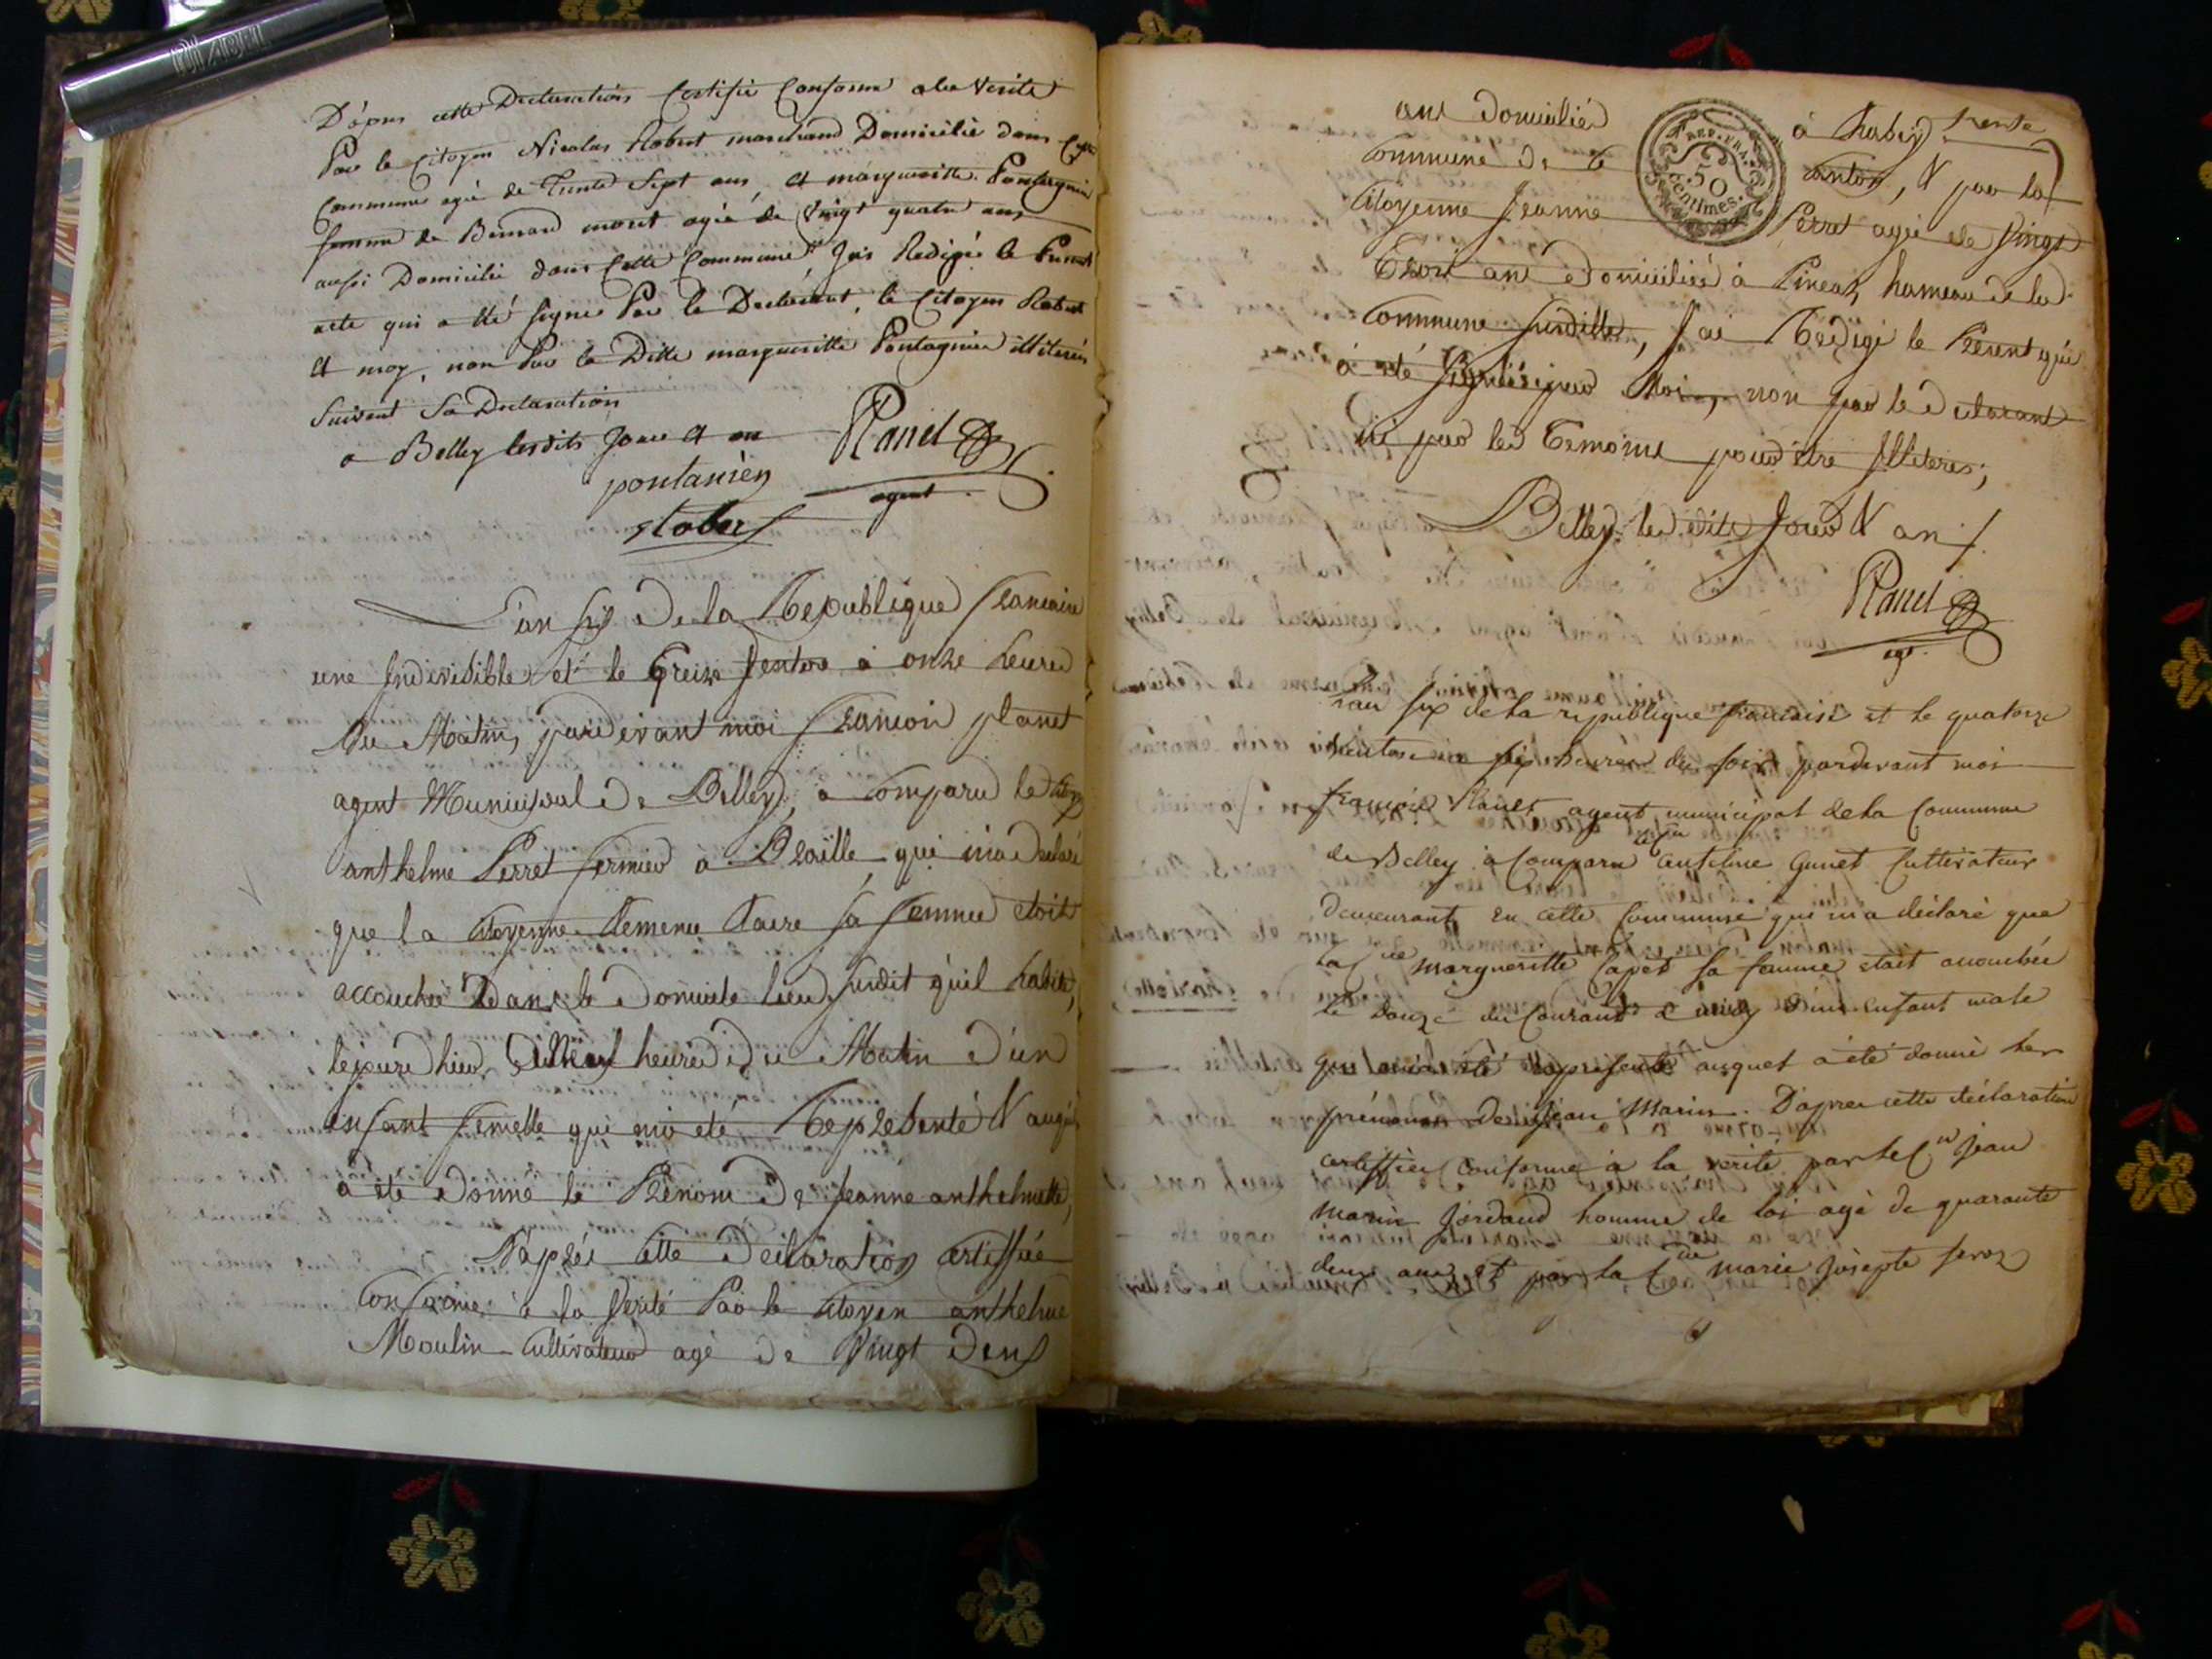 Dapres cette Declaration Certifié Conforme a la Verité
Par le Citoyen Nicolas Robert marchand Domicilié dans Cette
Commune agé de Trente Sept ans, et margueritte Pontagnier
femme de Bernard moret agée de Vingt quatre ans
aussi Domicilié dans Cette Commune Jais Redigés le Present
acte qui a Eté signé Par le Declarant, le Citoyen Robert
et moy, non Par la Ditte margueritte Pontagnier illiterés
Suivant Sa Declaration
a Belley lesdits Jour et an
Planet
pontanier
agent
Robert
L'an six De la République francaise
une Indivisible et le treize Ventos à onze heures
Du Matin, pardevant moi francois planet
agent Municipal De Belley, à Comparu le Citoyen
anthelme Perret fermier à Braille, qui m'a Déclaré
que la Citoyenne Clemence Claire sa femme etoit
accouchée Dans le Domicile lieu susdit qu'il habite,
le jour d'hier heures du Matin D'un
enfant femelle qui m'a eté Représenté & auquel
a été Donné le Prénom De Jeanne anthelmette,
D'après Cette Déclaration certiffiée
Conforme à la Verité Par le Citoyen anthelme
Moulin Cultivateur agé De Vingt Deux
ans Domicilié à
Commune De Canton, & par la
REP. FRA.
50
centimes.
Citoyenne Jeanne Perret agée de Vingt
Trois ans Domiciliée à hameau de la
Commune susditte, J'ai Rédigé le Present qui
à eté Signé par Moi, non par le Déclarant
ni par les Témoins pour être Illiteres;
Belley les dits Jour & an
Planet
agt.
L'an six de la republique francaise et le quatorze
ventose a six heures du soir pardevant moi
françois Planet agent municipal de la Commune
de Belley a Comparu le Cen antelme Gunet Cultivateur
demeurant en cette Commune qui m'a déclaré que
la Cne Margueritte Capet sa femme etait accouchée
le douze du Courant a midy d'un enfant male
qui m'a été représenté auquel a été donné les
prénoms de Jean Marin. D'après cette déclaration
certiffiée conforme à la verité par le Cn Jean
Marin Jordand homme de loi agé de quarante
deux ans et par la Cne marie josepte